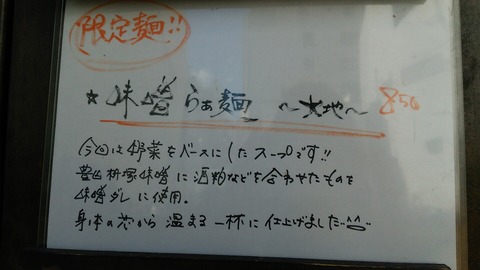 限定麺!!
★味噌らぁ麺 ～大地～ 850
今回は野菜をベースにしたスープです!!
豊山枡塚味噌に酒粕などを合わせたものを
味噌ダレに使用。
身体の芯から温まる一杯に仕上げました^^